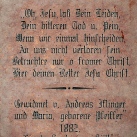 „Oh, Jesu laß Dein Leiden,
Dein bitteren Tod u. Pein,
Wenn wir einmal hinscheiden,
An uns nicht verloren sein.
Betrachte nur o frommer Christ,
Hier deinen Retter Jesu Christ.
Gewidmet v. Andreas
und Maria, geborene Pfeiffer
1882.